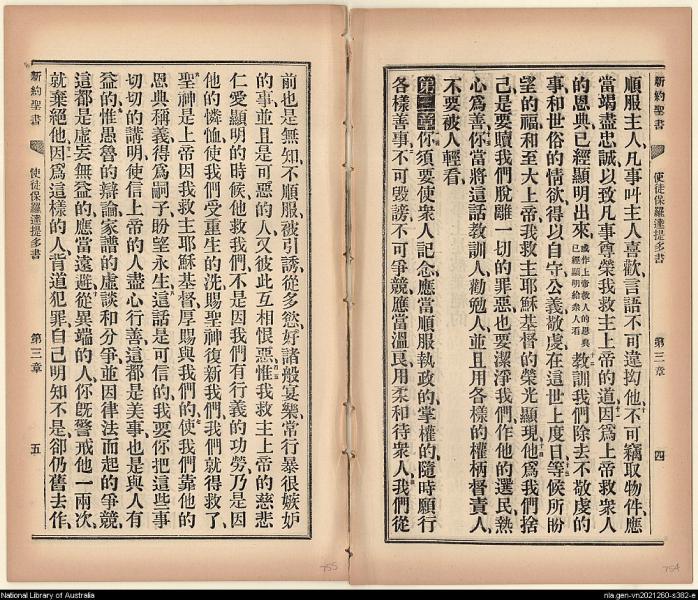 新約聖書 使徒保羅達提多書 第三章 四
順服主人、凡事叫主人喜歡、言語不可違拗他、不可竊取物件、應
當竭盡忠誠、以致凡事尊榮我救主上帝的道、因爲上帝救衆人
的恩典、已經顯明出來、或作上帝救人的恩典已經顯明給衆人看 敎訓我們除去不敬虔的
事、和世俗的情欲、得以自守、公義、敬虔、在這世上度日、等候所盼
望的福、和至大上帝、我救主耶穌基督的榮光顯現、他爲我們捨
己、是要贖我們脫離一切的罪惡、也要潔淨我們、作他的選民、熱
心爲善、你當將這話敎訓人、勸勉人、並且用各樣的權柄督責人、
不要被人輕看、
第三章 你須要使衆人記念、應當順服執政的、掌權的、隨時願行
各樣善事、不可毀謗、不可爭競、應當溫良、用柔和待衆人、我們從
前也是無知、不順服、被引誘、從多慾、好諸般宴樂、常行暴很嫉妒
的事、並且是可惡的人、又彼此互相恨惡、惟我救主上帝的慈悲
仁愛顯明的時候、他救我們、不是因我們有行義的功勞、乃是因
他的憐恤、使我們受重生的洗、賜聖神復新我們、我們就得救了、
聖神是上帝因我救主耶穌基督、厚賜與我們的、使我們靠他的
恩典稱義、得爲嗣子、盼望永生、這話是可信的、我要你把這些事
切切的講明、使信上帝的人、盡心行善、這都是美事、也是與人有
益的、惟愚魯的辯論、家譜的虛談、和分爭、並因律法而起的爭競、
這都是虛妄無益的、應當遠避、從異端的人、你旣警戒他一兩次、
就棄絕他、因爲這樣的人、背道犯罪、自己明知不是、卻仍舊去作、
新約聖書 使徒保羅達提多書 第三章 五
755
754
National Library of Australia
nla.gen-vn2021260-s382-e